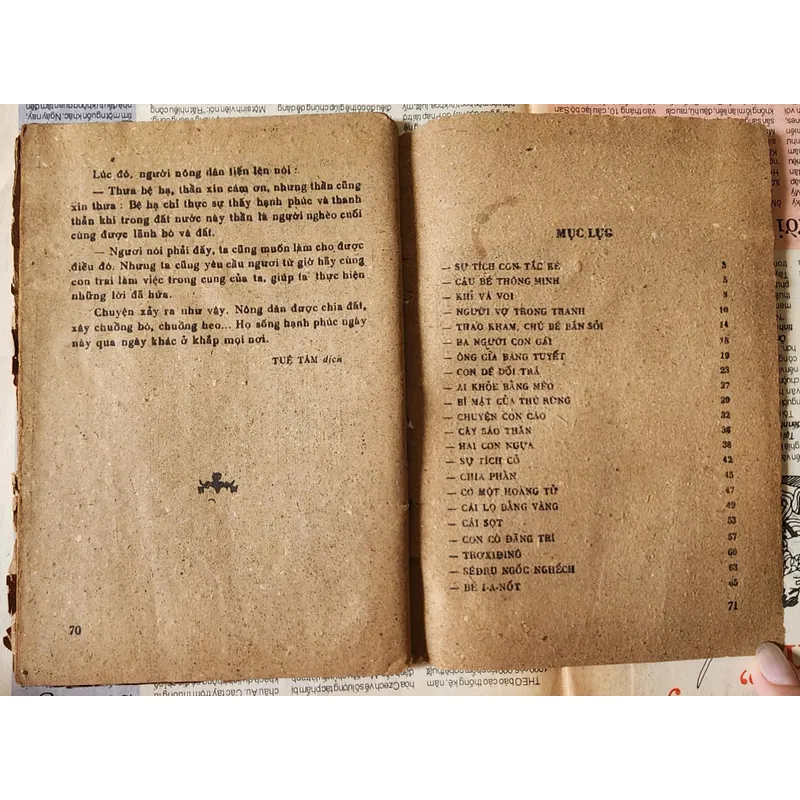 Lúc đó, người nông dân tiến lên nói :
— Thưa bệ hạ, thần xin cám ơn, nhưng thần cũng
xin thưa : Bệ hạ chỉ thực sự thấy hạnh phúc và thanh
thản khi trong đất nước này thần là người nghèo cuối
cùng được lãnh bò và đất.
— Ngươi nói phải đấy, ta cũng muốn làm cho được
điều đó. Nhưng ta cũng yêu cầu ngươi từ giờ hãy cùng
con trai làm việc trong cung của ta, giúp ta thực hiện
những lời đã hứa.
Chuyện xảy ra như vậy. Nông dân được chia đất,
xây chuồng bò, chuồng heo... Họ sống hạnh phúc ngày
này qua ngày khác ở khắp mọi nơi.
TUỆ TÂM dịch
70
MỤC LỤC
— SỰ TÍCH CON TẮC KÈ 3
— CẬU BÉ THÔNG MINH 5
— KHỈ VÀ VOI 8
— NGƯỜI VỢ TRONG TRANH 10
— THẠO KHAM, CHÚ BÉ BẮN SỎI 14
— BA NGƯỜI CON GÁI 18
— ÔNG GIÀ BĂNG TUYẾT 19
— CON DÊ DỐI TRÁ 23
— AI KHỎE BẰNG MÈO 27
— BÍ MẬT CỦA THÚ RỪNG 29
— CHUYỆN CON CÁO 32
— CÂY SÁO THẦN 36
— HAI CON NGỰA 38
— SỰ TÍCH CỎ 42
— CHIA PHẦN 45
— CÓ MỘT HOÀNG TỬ 47
— CÁI LỌ BẰNG VÀNG 49
— CÁI SỌT 53
— CON CÒ ĐÃNG TRÍ 57
— TROXIĐINÔ 60
— SÊDRU NGỐC NGHẾCH 63
— BÉ I-A-NỐT 65
71